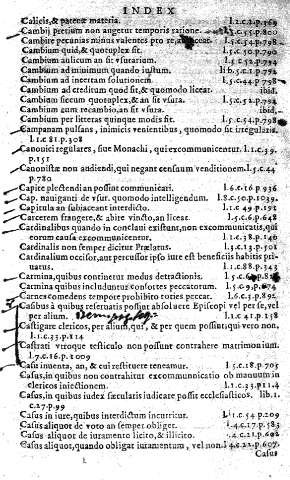 INDEX
Calicis, & patenæ materia. l.2.c.2.p.169
Cambij pretium non augetur temporis ratione. l.5.c.55.p.800
Cambire pecunias minus valentes pro re, an liceat. l.5.c.54.p.798
Cambium quid, & quotuplex sit. l.5.c.50.p.790
Cambium aulicum an sit vsurarium. l.5.c.52.p.794
Cambium ad minimum quando iustum. lib.5.c.1.p.792
Cambium ad incertam solutionem l.5.c.44.p.798
Cambium ad creditum quod sit, & quomodo liceat. ibid.
Cambium siccum quotuplex, & an sit vsura. l.5.c.52.p.794
Cambium cum recambio, an sit vsura. ibid.
Cambium per litteras quinque modis sit. l.5.c.54.p.798
Campanam pulsans, inimicis venientibus, quomodo sit irregularis.
l.1.c.81.p.308
Canonici regulares, siue Monachi, qui excommunicentur. l.1.c.39.
p.151
Canonistæ non audiendi, qui negant censuum venditionem. l.5.c.44
p.780
Capite plectendi an possint communicari. l.6.c.16.p.936
Cap. nauiganti de vsur. quomodo intelligendum. l.8.c.50.p.1039.
Capitula an subiaceant interdicto. l.1.c.49.p.192
Carcerem frangere, & abire vincto, an liceat. l.5.c.6.p.648
Cardinalibus quando in conclaui existunt, non excommunicatis, qui
eorum causa excommunicentur. l.1.c.38.p.146
Cardinalis non semper dicitur Prælatus. l.3.c.13.p.501
Cardinalium occisor, aut percussor ipso iure est beneficiis habitis priuatus.
l.1.c.88.p.343
Carmina, quibus continetur modus detractionis.
Carmina quibus includuntur consortes peccatorum. l.5.c.9.p.674
Carnes comedens tempore prohibito toties peccat. l.6.c.3.p.892
Casibus à quibus reseruatis possint absoluere Episcopi vel per se, vel
per alium. l.1.c.41.p.158
Castigare clericos, per alium, qui, & per quem possint: qui vero non,
l.1.c.35.p.114
Castrati viroque testiculo non possunt contrahere matrimonium.
l.7.c.16.p.1009
Casu inuenta, an, & cui restituere teneamur. l.5.c.18.p.705
Casus, in quibus non contrahitur excommunicatio ob manuum in
clericos iniectionem. l.1.c.35.p.114
Casus, in quibus iudex sæcularis iudicare possit ecclesiasticos. lib.1.
c.27.p.99
Casus in iure, quibus interdictum incurritur. l.1.c.54.p.209
Casus aliquot de voto an semper obliget. l.4.c.17.p.583
Casus aliquot de iuramento licito, & illicito. l.4.c.21.p.602
Casus aliquot, quando obligat iuramentum, vel non. l.4.c.22.p.607.
Casus